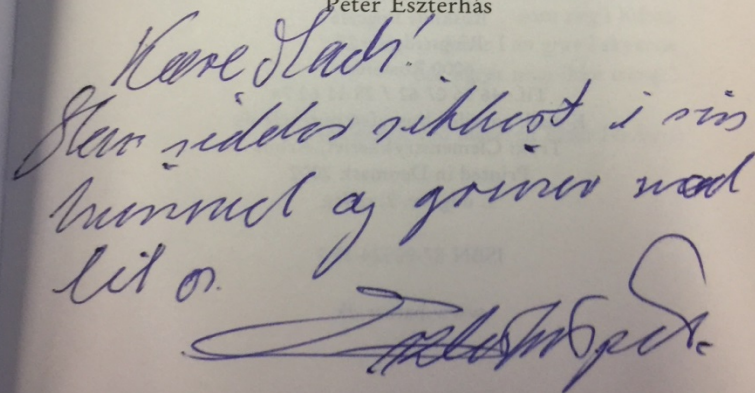 Peter Eszterhás
Kære Mads!
Han sidder sikkert i sin
himmel og griner ned
til os.